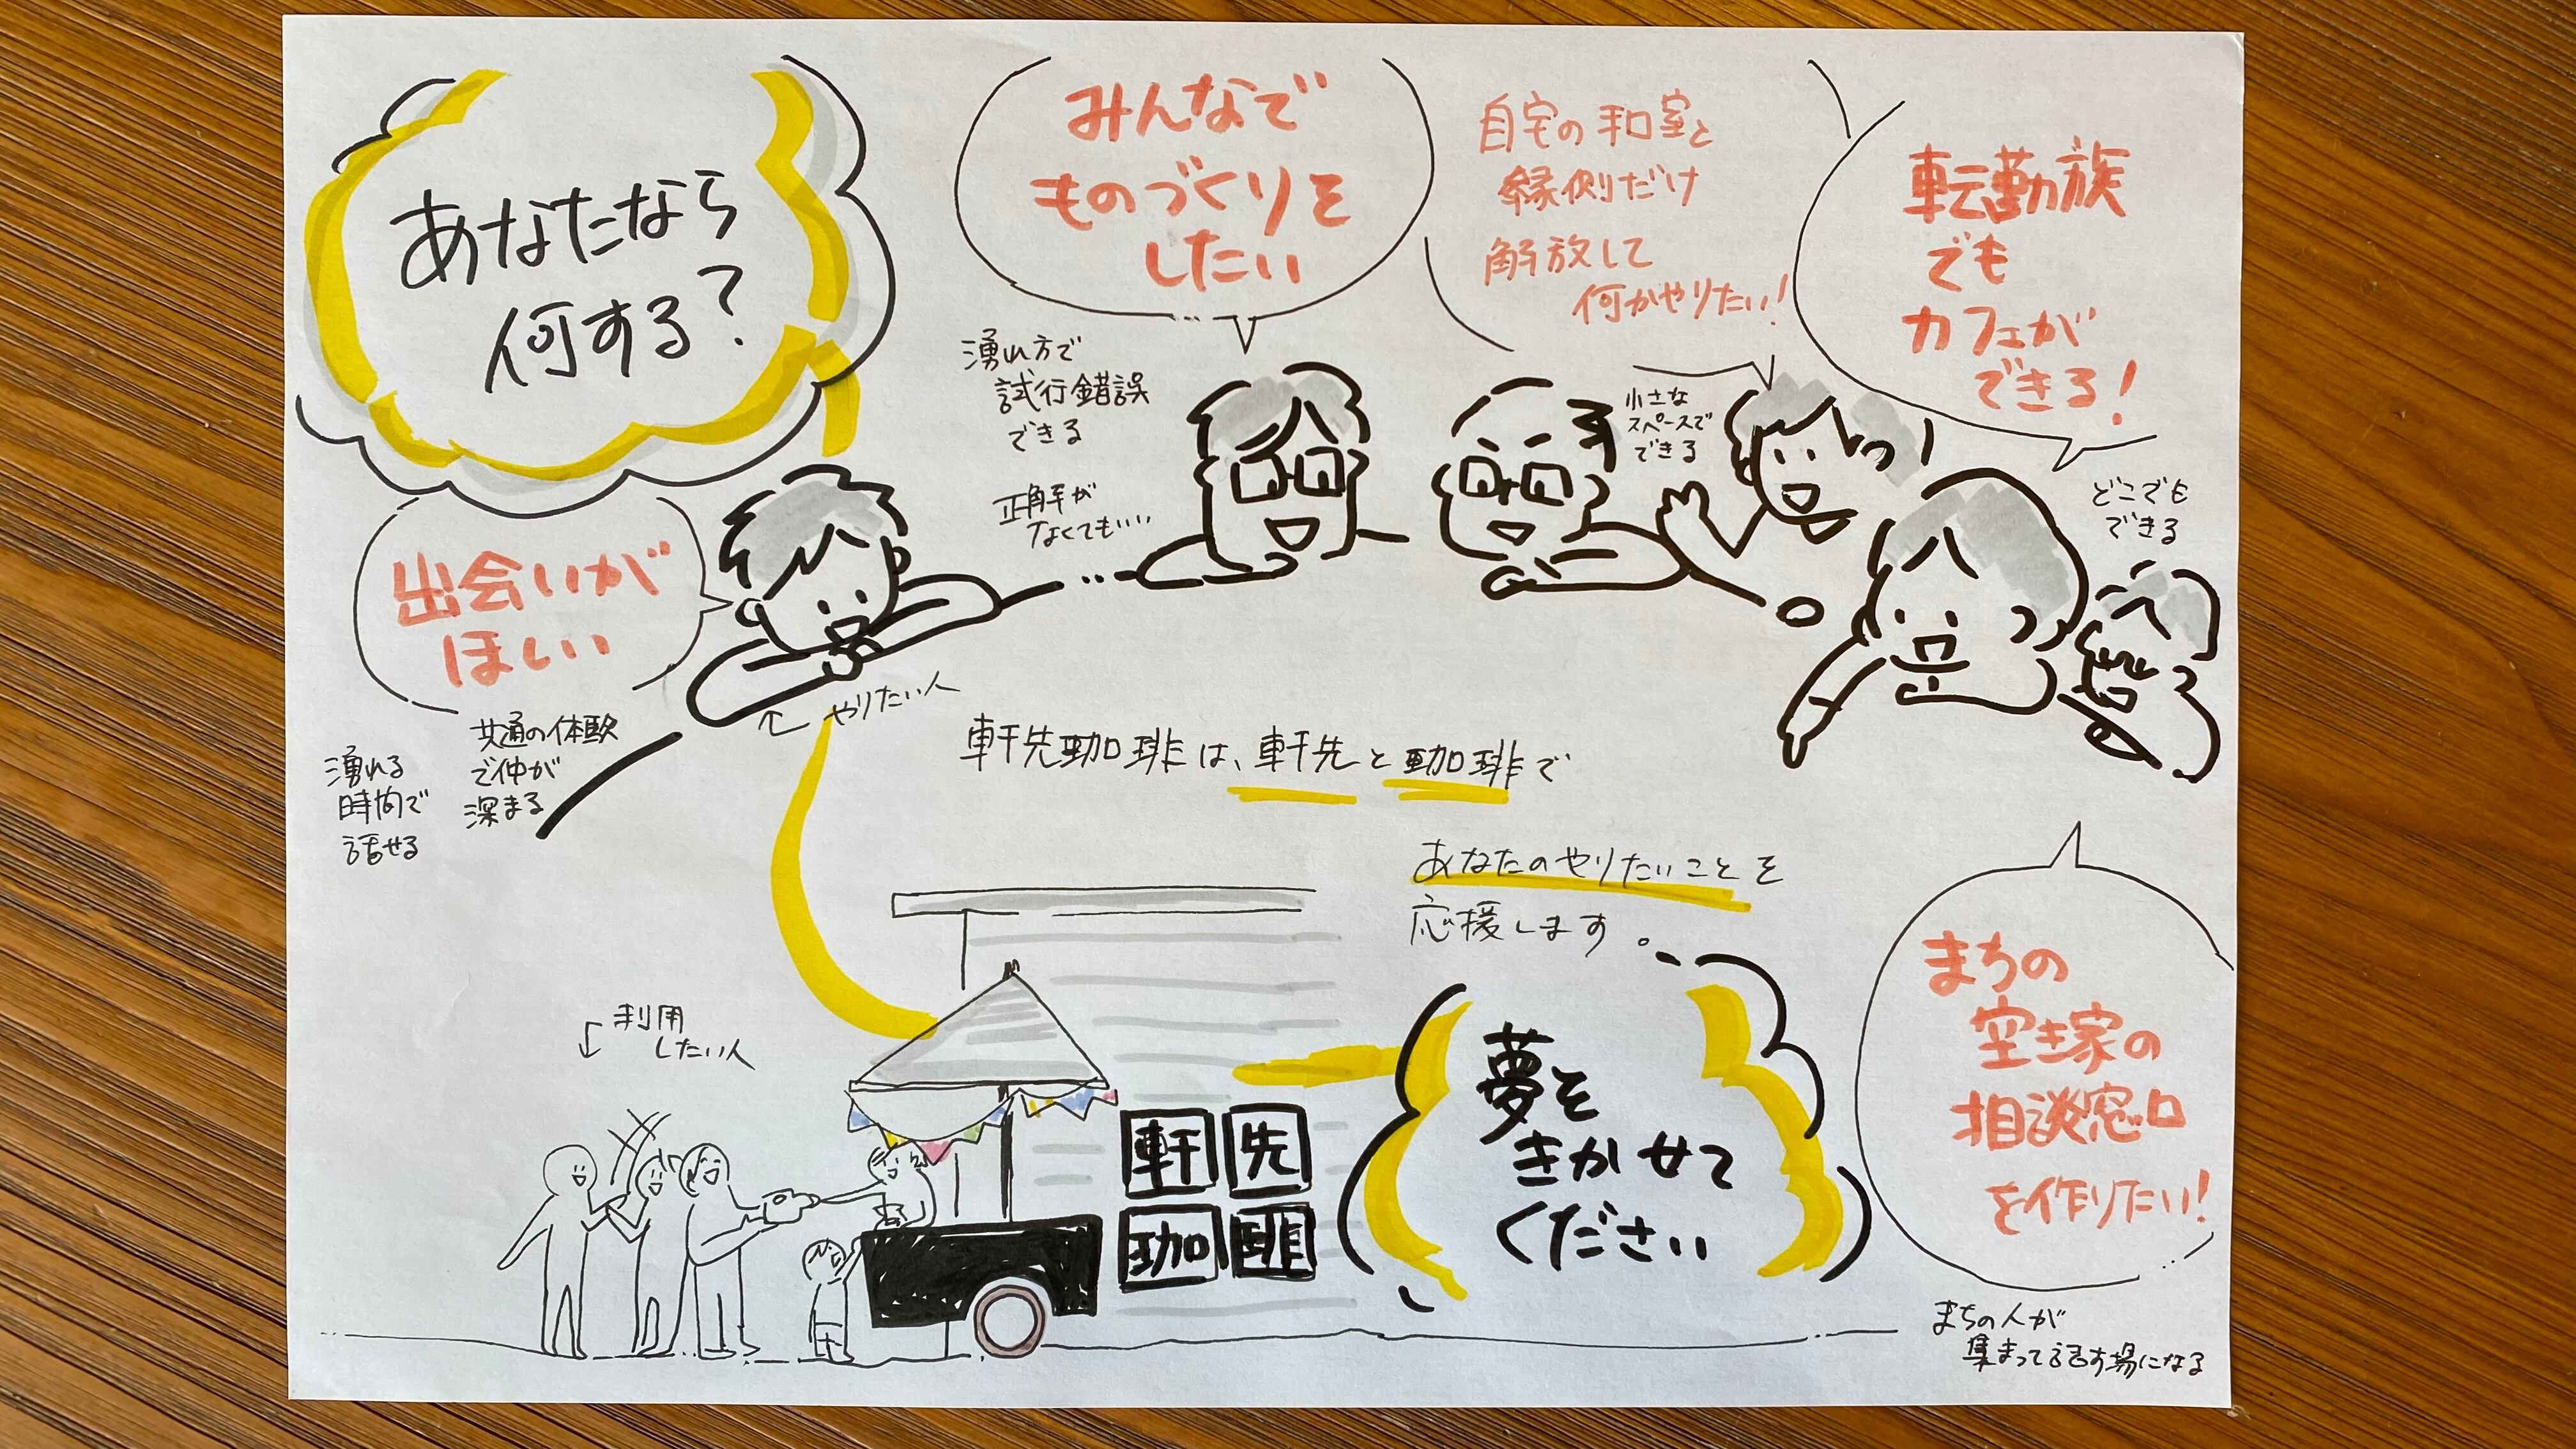 あなたなら
何する?
みんなで
ものづくりを
したい
自宅の和室と
縁側だけ
解放して
何かやりたい!
転勤族
でも
カフェが
できる!
湧れ方で
試行錯誤
できる
正解が
なくてもいい
小さな
スペースで
できる
どこでも
できる
出会いが
ほしい
共通の体験
で仲が
深まる
湧れる
時間で
話せる
やりたい人
軒先珈琲は、軒先と珈琲で
あなたのやりたいことを
応援します。
利用
したい人
軒先
珈琲
夢を
きかせて
ください
まちの
空き家の
相談窓口
を作りたい!
まちの人が
集まって話す場になる